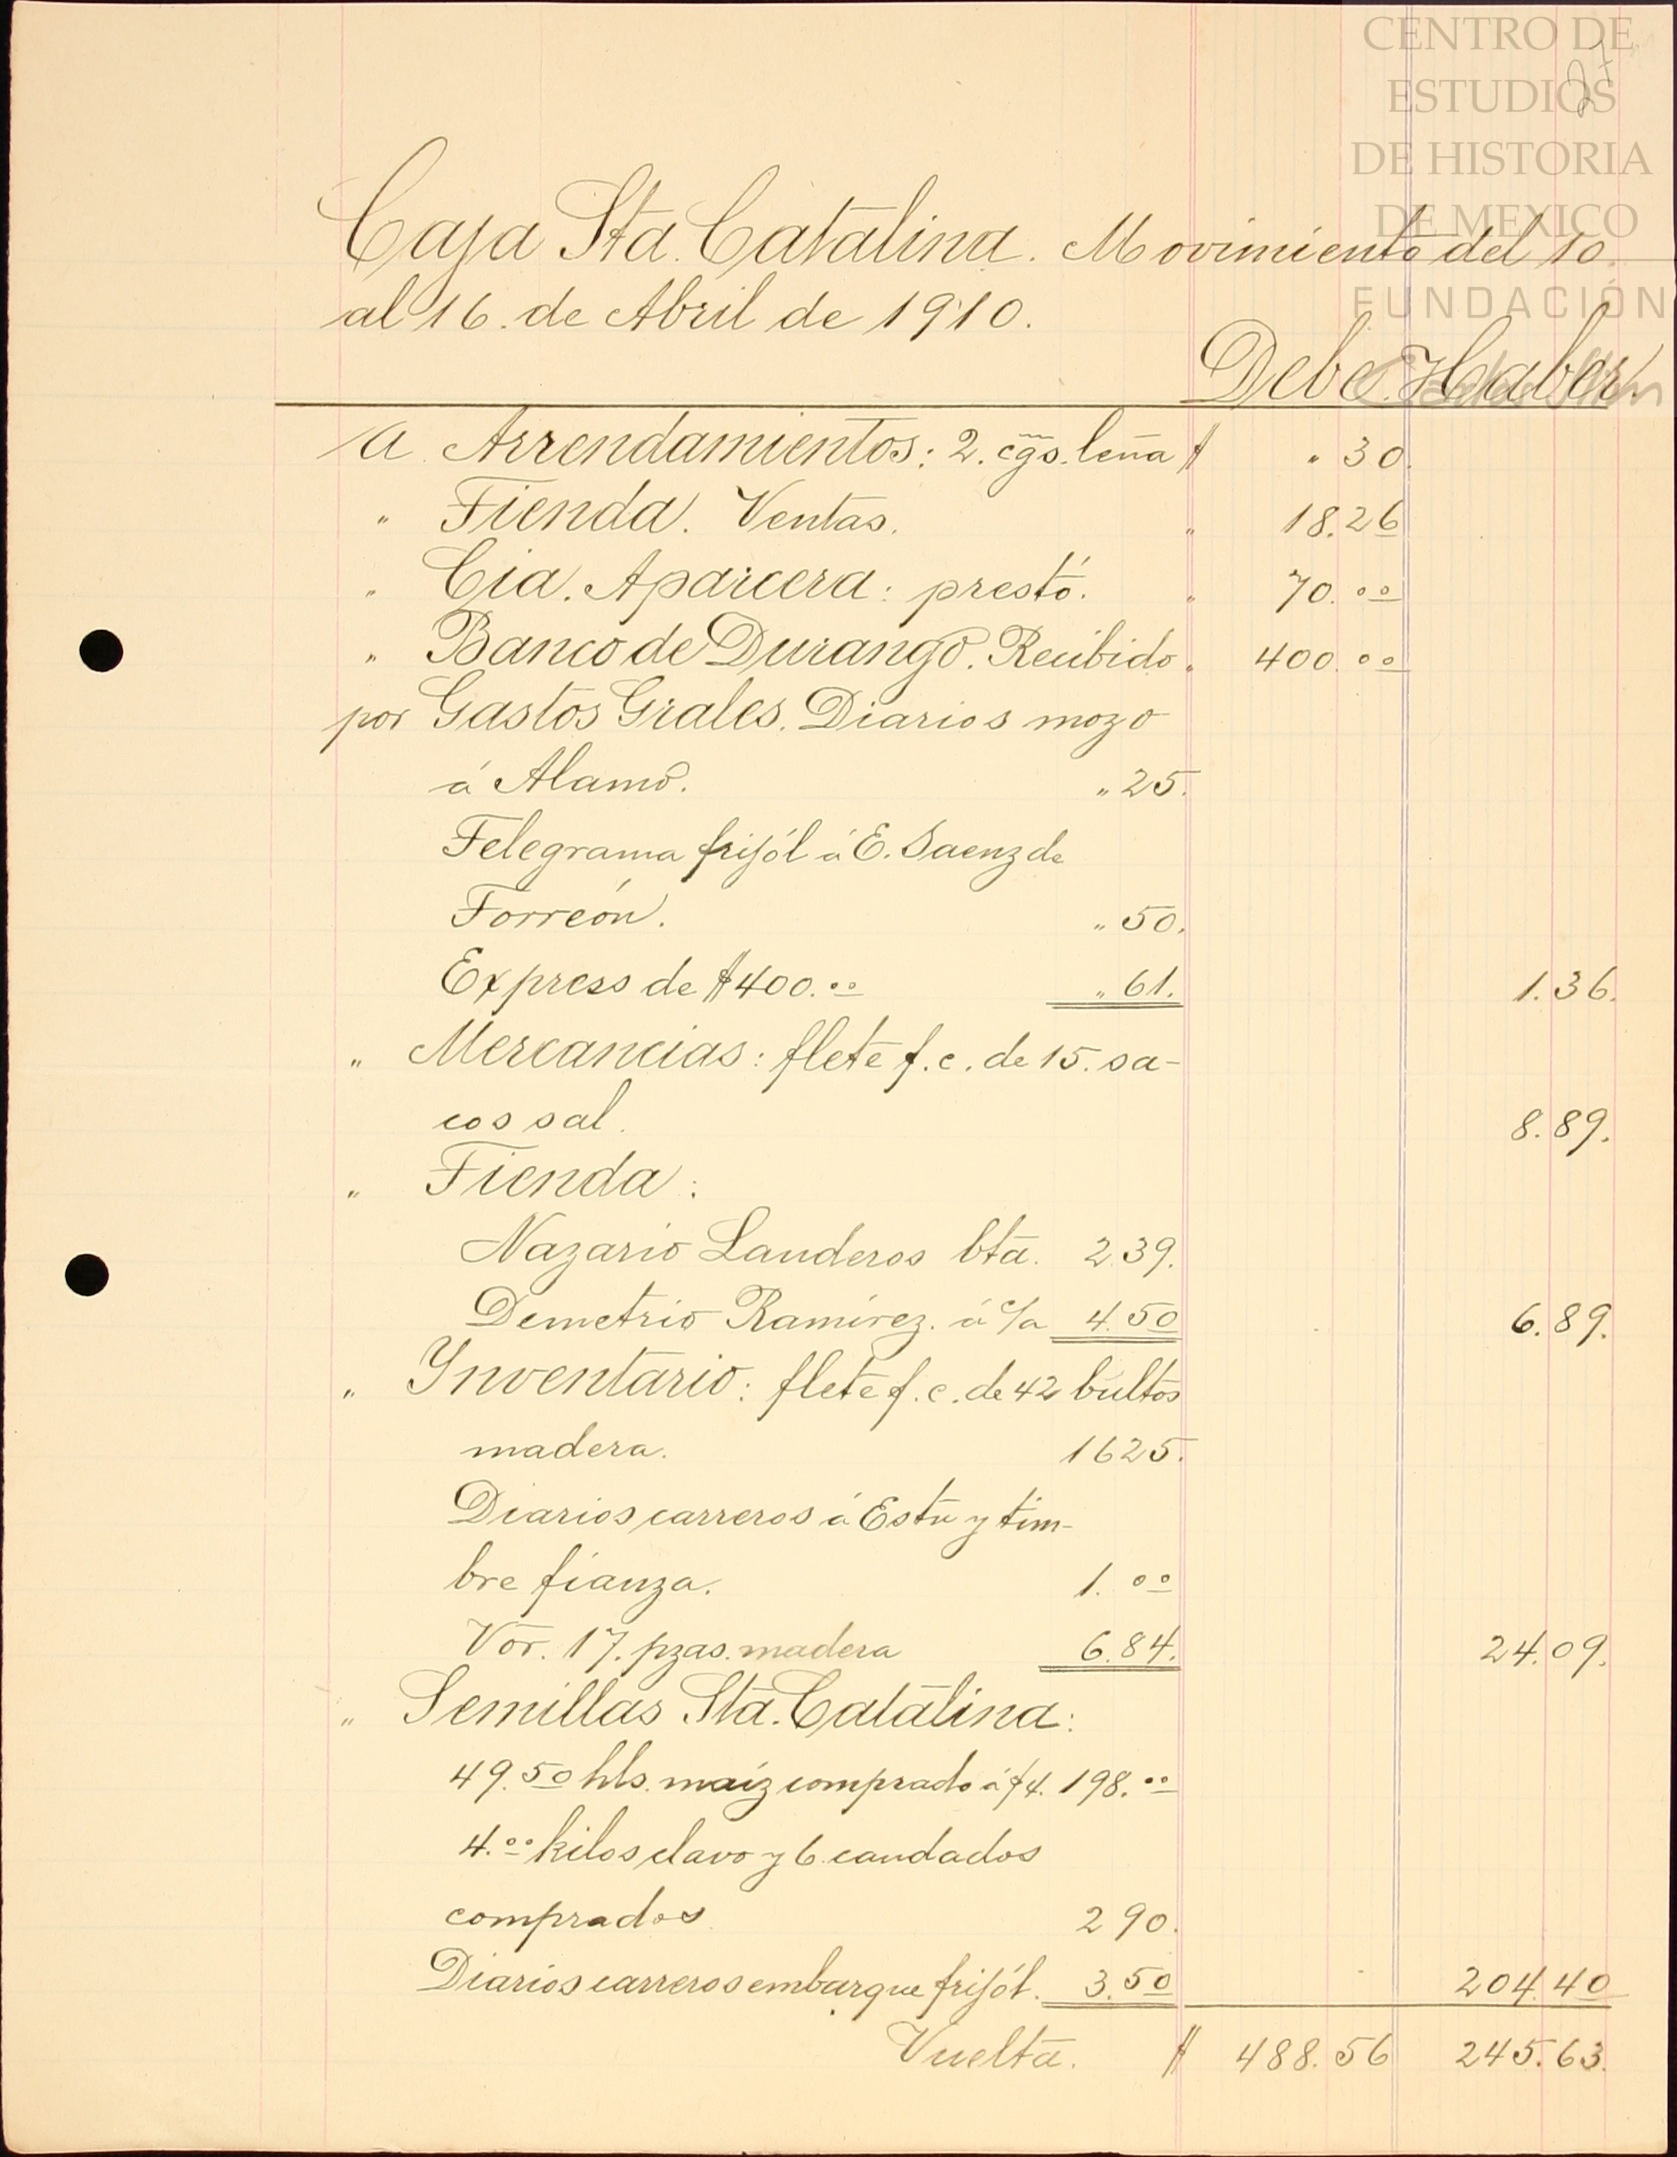 CENTRO DE
ESTUDIOS
DE HISTORIA
DE MEXICO
FUNDACIÓN
27
Caja Sta. Catalina. Movimiento del 10
al 16. de Abril de 1910.
Debe. Haber.
a Arrendamientos: 2. cgs. leña $ " 30.
" Tienda. Ventas. " 18.26
" Cia. Aparcera: prestó. " 70.00
" Banco de Durango. Recibido " 400.00
por Gastos Grales. Diarios mozo
á Alamo. " 25.
Telegrama frijól á E. Saenz de
Torreón. " 50.
Express de $400.00 " 61. 1.36.
" Mercancias: flete f.c. de 15. sa-
cos sal. 8.89.
" Tienda:
Nazario Landeros bta. 2.39.
Demetrio Ramírez. á c/a 4.50 6.89.
" Ynventario: flete f.c. de 42 bultos
madera. 1625.
Diarios carreros á Estn y tim-
bre fianza. 1.00
Vor. 17. pzas. madera 6.84. 24.09.
" Semillas Sta. Catalina:
49.50 hls. maíz comprado á $4. 198.00
4.00 kilos clavo y 6 candados
comprados 290.
Diarios carreros embarque frijól. 3.50 204.40
Vuelta. $ 488.56 245.63.